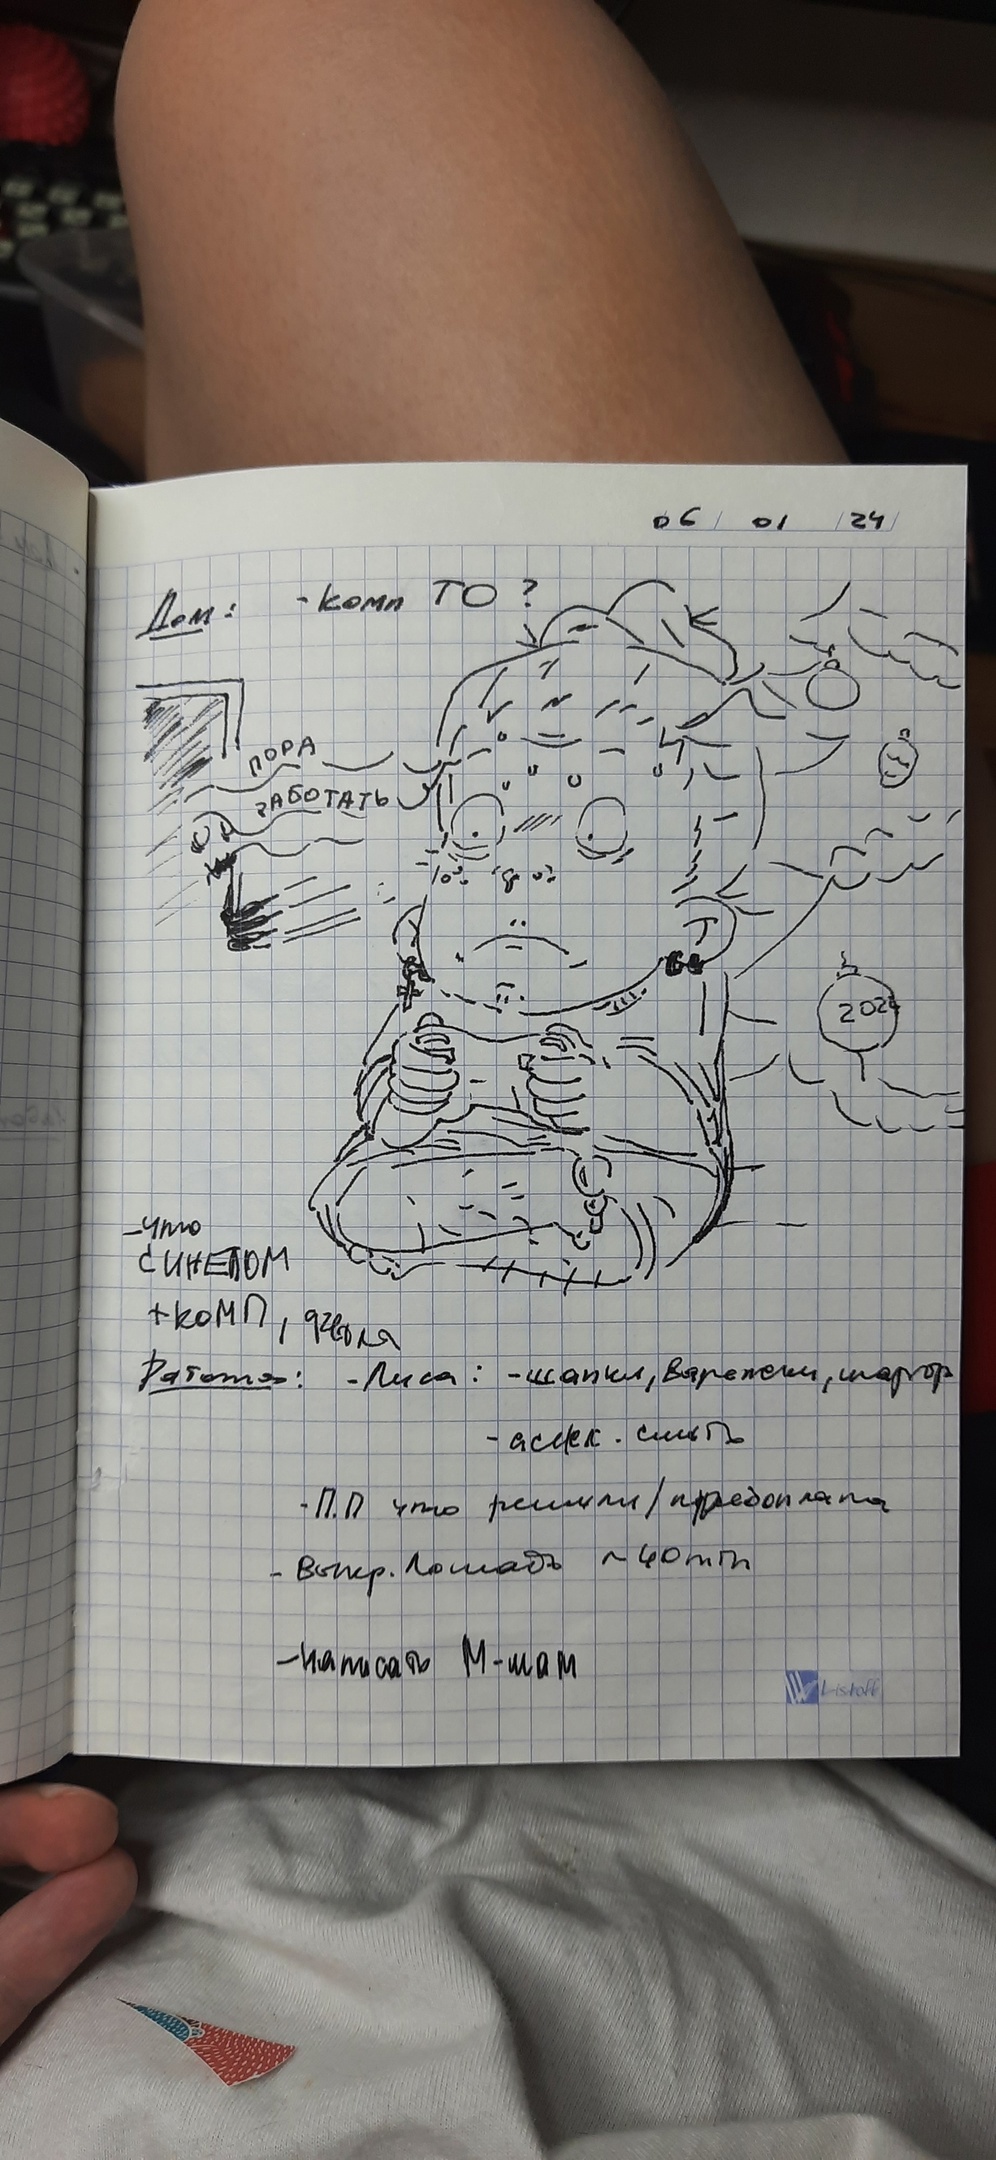 06 / 01 / 24
Дом: - комп ТО ?
ПОРА
РАБОТАТЬ
2024
- что
+ КОМП,
Работа: - Лиса: - шапки, варежки, шарф
- П.П что решили/предоплата
- Выкр. Лошадь ~ 40min
- написать М-шам
Listoff